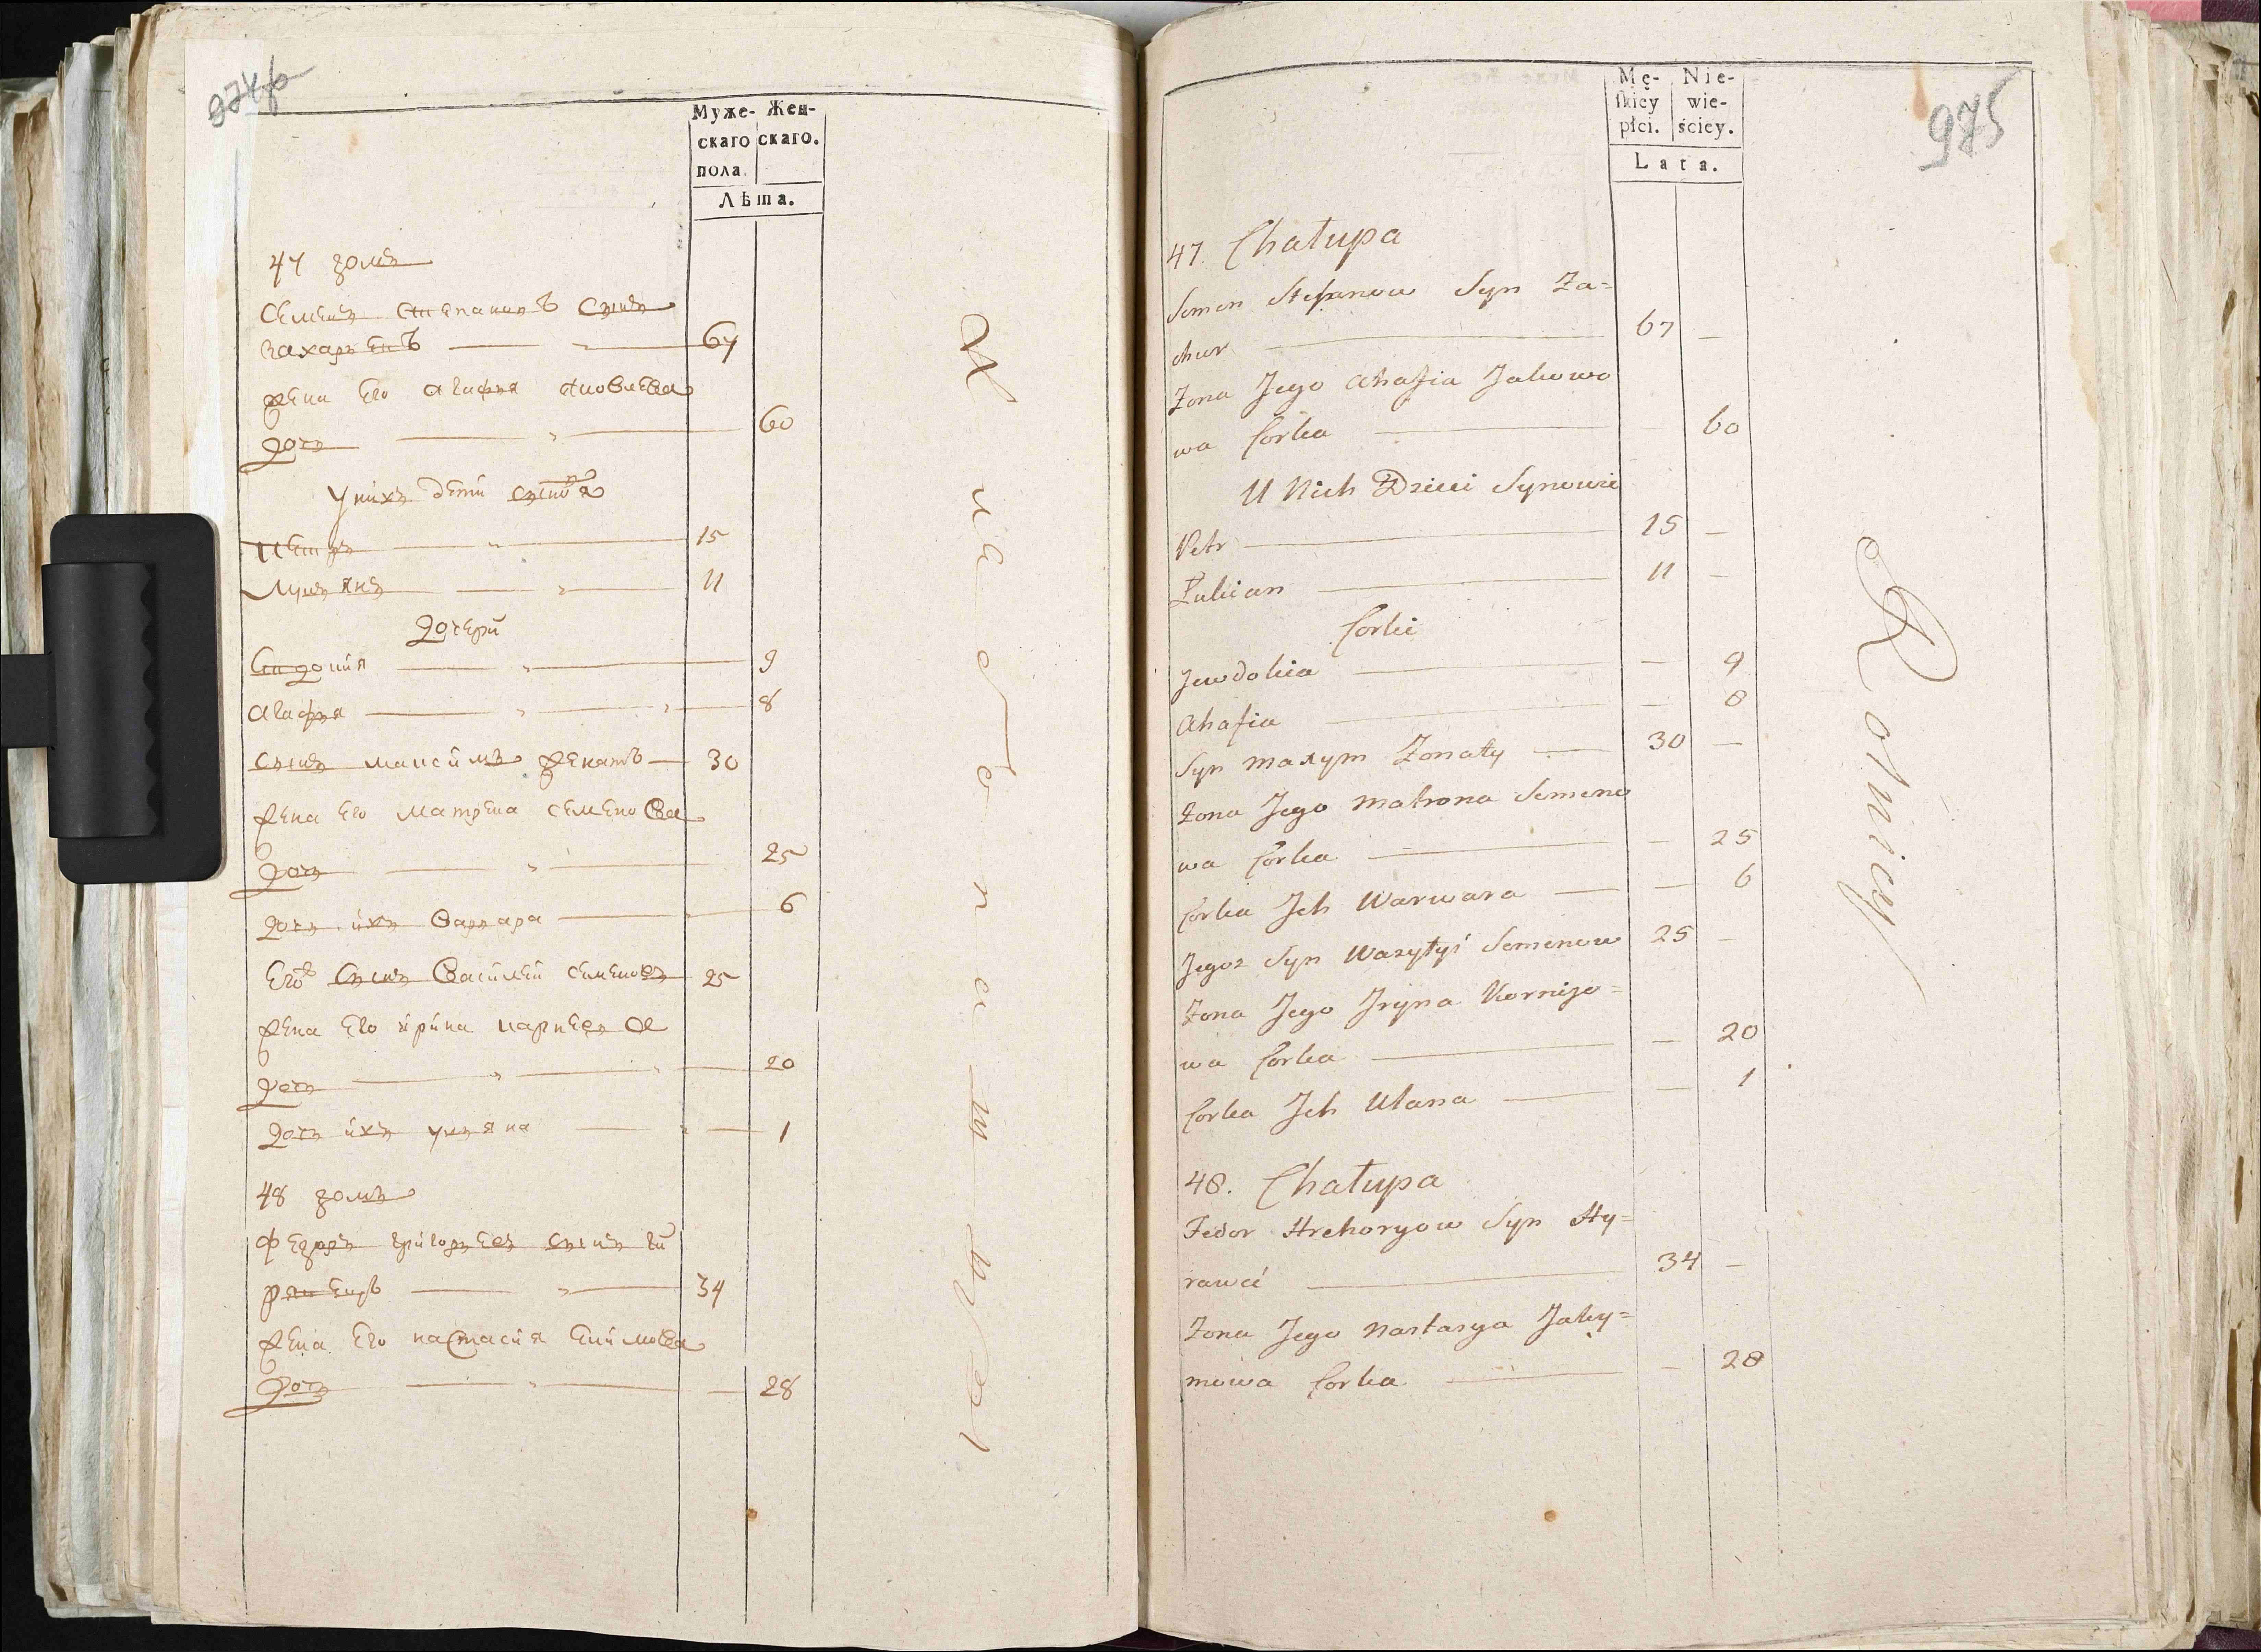 Муже-
скаго
пола.
Жен-
скаго.
Лѣта.
47 домъ
Семенъ Степановъ сынъ
Захаренъ 67
жена его Агафья Яковлева
дочь 60
у нихъ дети сыновя
Петръ 15
Лукьянъ 11
дочери
9
Агафья 8
сынъ Максимъ женатъ 30
жена его Матрена Семенова
дочь 25
дочь ихъ Варвара 6
его сынъ Василей Семеновъ 25
жена его Ирина Карнеева
дочь 20
дочь ихъ Ульяна 1
48 домъ
Федоръ Григорьевъ сынъ Ги
34
жена его Настасия Екимова
дочь 28
975
Mę-
skiey
płci.
Nie-
wie-
ściey.
Lata.
47. Chałupa
Semen Stefanow Syn Za=
chur 67 —
Zona Jego Ahafia Jakowo
wa Corka — 60
U Nich Dzieci Synowie
Petr 15 —
Łukian 11 —
Corki
Jewdokia — 9
Ahafia — 8
Syn Maxym Zonaty 30 —
Zona Jego Matrona Semeno
wa Corka — 25
Corka Jch Warwara — 6
Jegoz Syn Wasyłyi Semenow 25 —
Zona Jego Jryna Kornijo=
wa Corka — 20
Corka Jch Ulana — 1
48. Chałupa
Fedor Hrehoryow Syn Hy=
rawci 34 —
Zona Jego Nastasya Jaky=
mowa Corka — 28
Rolnicy